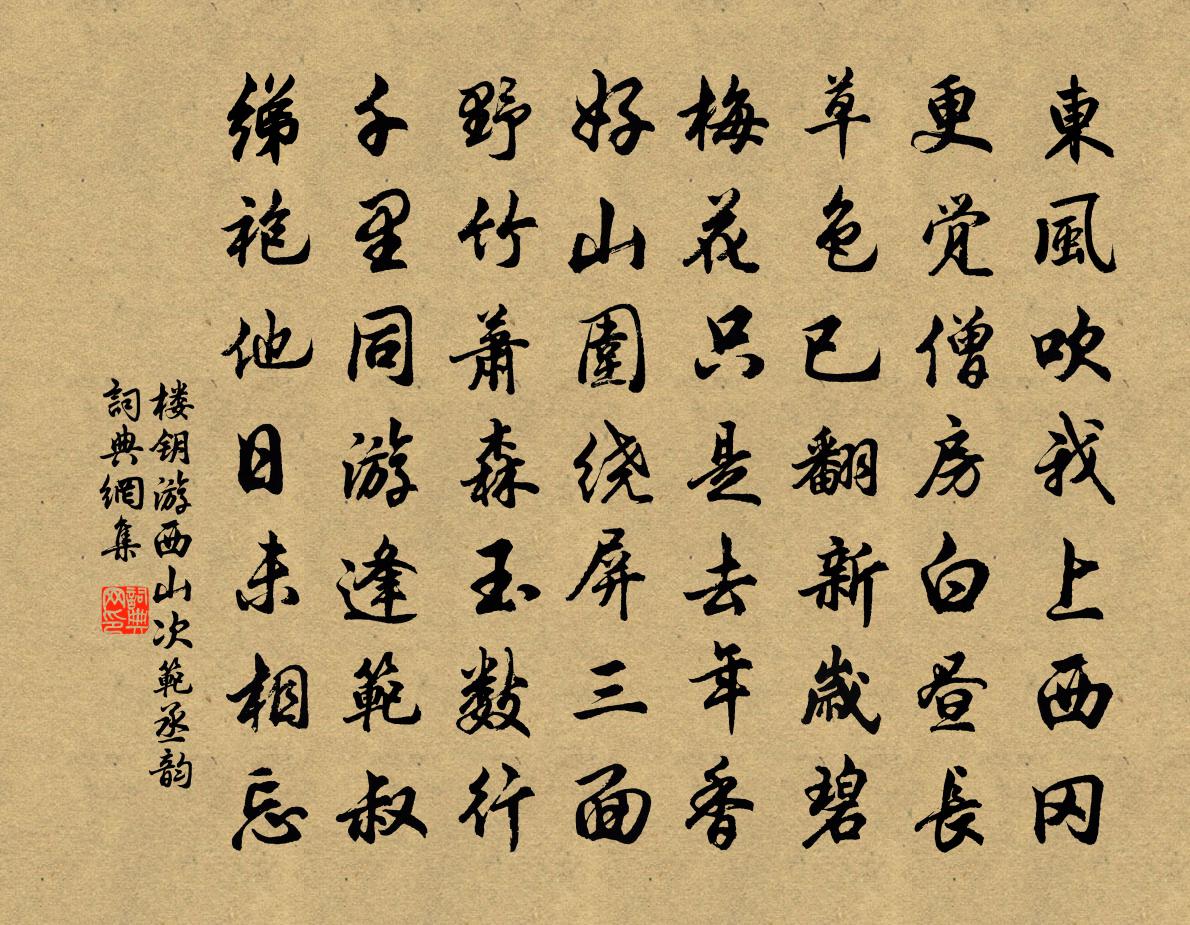 東風吹我上西冈
更觉僧房白昼長
草色已翻新歲碧
梅花只是去年香
好山圍绕屏三面
野竹蕭森玉数行
千里同游逢範叔
绨袍他日未相忘
楼钥游西山次範丞韵
詞典網集
詞典网印